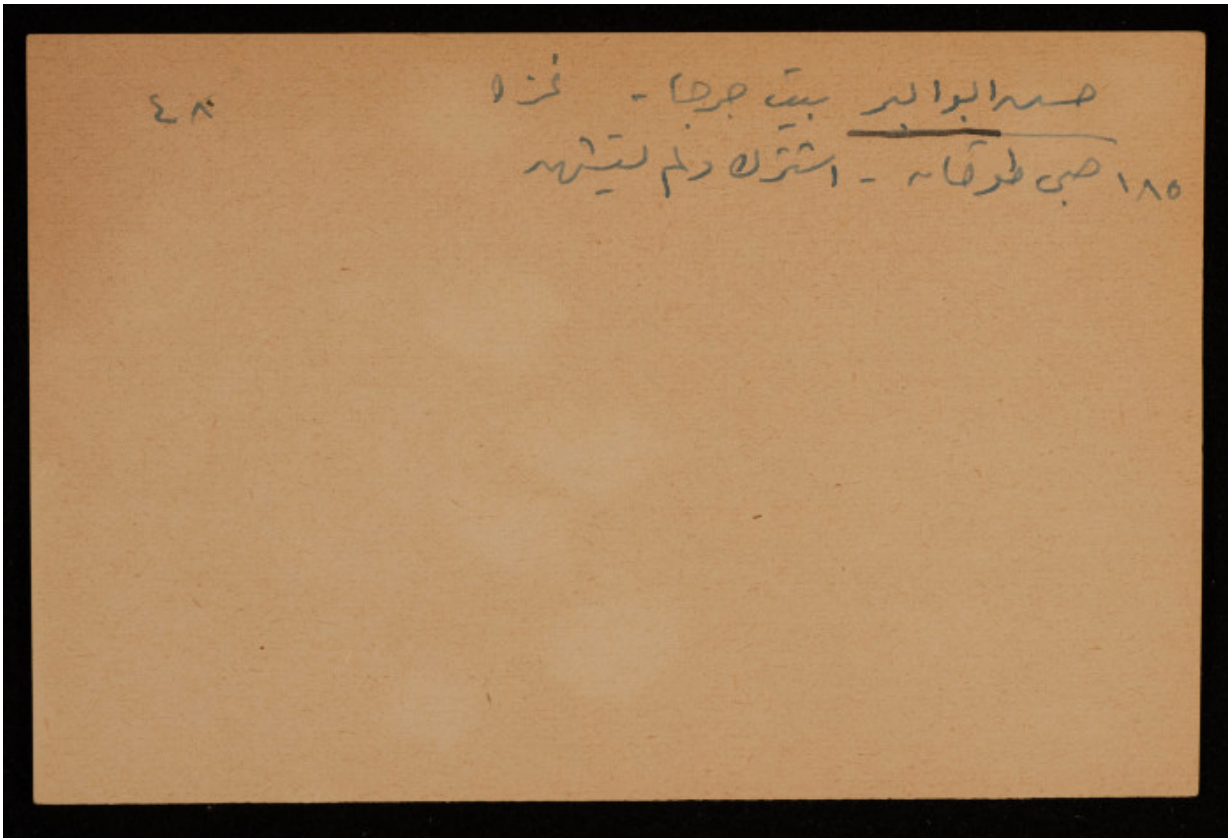 حسن ابو البر بيت جرجا - غزه ٤٨
١٨٥ صبحي طوقان - اشترك ولم يستشهد